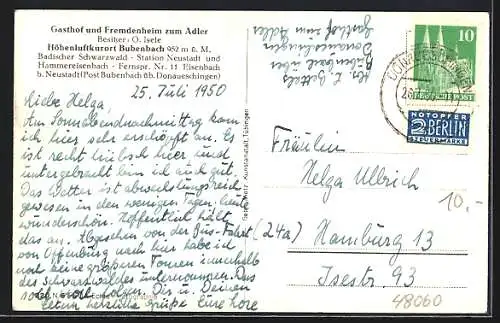 Gasthof und Fremdenheim zum Adler
Besitzer: O. Isele
Höhenluftkurort Bubenbach 952 m ü. M.
Badischer Schwarzwald - Station Neustadt und
Hammereisenbach - Fernspr. Nr. 11 Eisenbach
b. Neustadt (Post Bubenbach üb. Donaueschingen)
25. Juli 1950
Liebe Helga,
Am Sonnabendnachmittag kam
ich hier sehr erschöpft an. Es
ist recht hübsch hier, und
untergebracht bin ich auch gut.
Das Wetter ist abwechslungsreich
gewesen in den wenigen Tagen, heute
wunderschön. Hoffentlich hält
das an. Abgesehen von der Bus-Fahrt
von Offenburg nach hier habe ich
noch keine größeren Touren innerhalb
des Schwarzwaldes unternommen. Das
soll noch folgen. Dir u. Deinen
Eltern herzliche Grüße Eure Lore
Bubenbach über
Donaueschingen
Gasthof zum Adler
10
DEUTSCHE POST
NOTOPFER
2 BERLIN
STEUERMARKE
Fräulein
Helga Ullbrich
(24a) Hamburg 13
Isestr. 93
10,-
48060